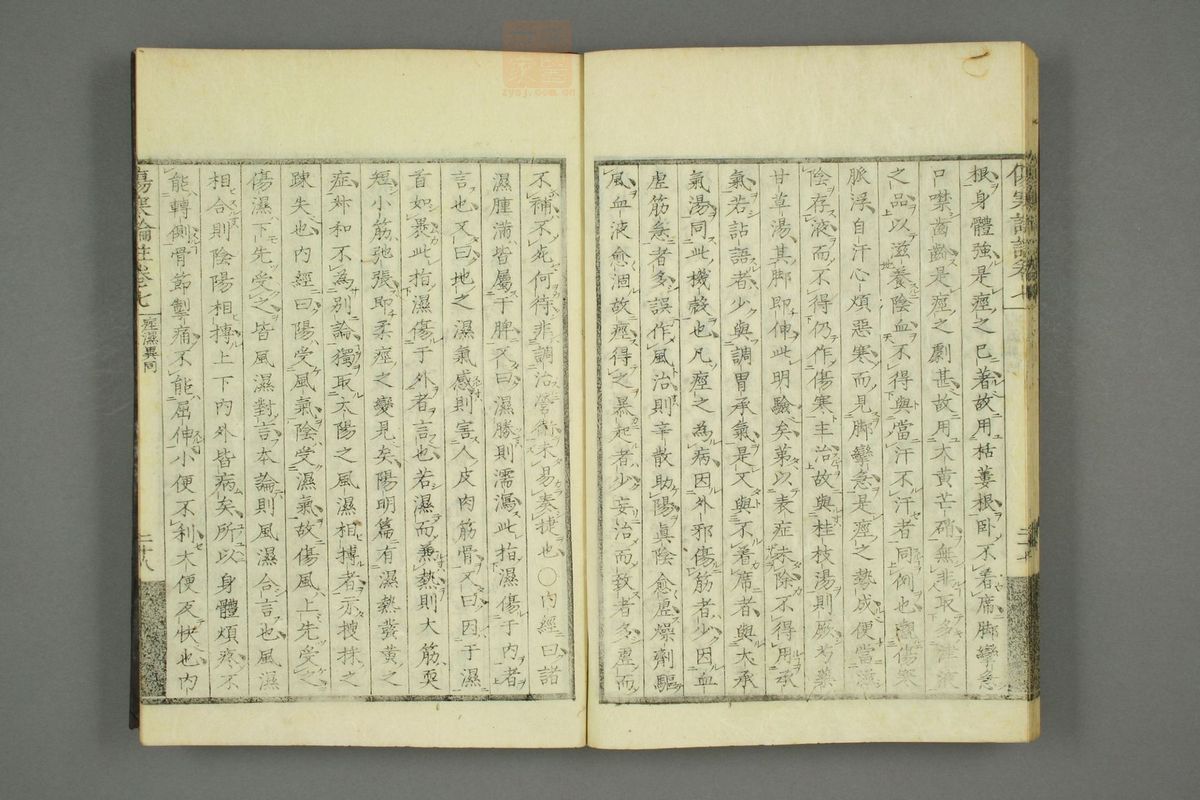 根身體強是痙之已著故用栝蔞根臥不着席脚攣急
口噤齒齘是痙之劇甚故用大黃芒硝無非取多津液
之品以滋養陰血不得與當汗不汗者同例也觀傷寒
脈浮自汗心煩惡寒而見脚攣急是痙之勢成便當滋
陰存液而不得仍作傷寒主治故與桂枝湯則厥與藥
甘草湯其脚即伸此明驗矣第以表症未除不得用承
氣若詀語者少與調胃承氣是又與不着席者與大承
氣湯同此機彀也凡痙之為病因外邪傷筋者少因血
虛筋急者多誤作風治則辛散助陽眞陰愈虛燥劑驅
風血液愈涸故痙得之暴起者少妄治而致者多虛而
傷寒論註卷七 痙濕異同 二十八
不補不死何待非調治營衛未易奏捷也〇內經曰諸
濕腫滿皆屬于脾又曰濕勝則濡瀉此指濕傷于內者
言也又曰地之濕氣感則害人皮肉筋骨又曰因于濕
首如裹此指濕傷于外者言也若濕而兼熱則大筋耎
短小筋弛張即柔痙之變見矣陽明篇有濕熱發黃之
症叅和不為別論獨取太陽之風濕相摶者示搜採之
踈失也內經曰陽受風氣陰受濕氣故傷風上先受之
傷濕下先受之皆風濕對言本論則風濕合言也風濕
相合則陰陽相摶上下內外皆病矣所以身體煩疼不
能轉側骨節掣痛不能屈伸小便不利大便反快也內